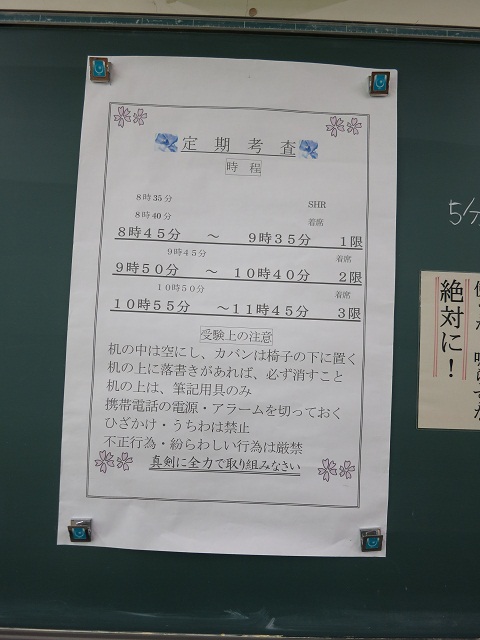 定期考査
時程
8時35分 SHR
8時40分 着席
8時45分 ～ 9時35分 1限
9時45分 着席
9時50分 ～ 10時40分 2限
10時50分 着席
10時55分 ～11時45分 3限
受験上の注意
机の中は空にし、カバンは椅子の下に置く
机の上に落書きがあれば、必ず消すこと
机の上は、筆記用具のみ
携帯電話の電源・アラームを切っておく
ひざかけ・うちわは禁止
不正行為・紛らわしい行為は厳禁
真剣に全力で取り組みなさい
絶対に！